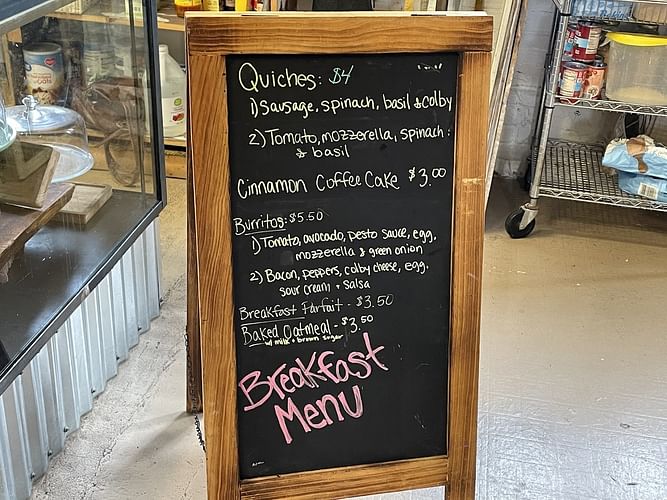 Quiches: $4
1) Sausage, spinach, basil & colby
2) Tomato, mozzerella, spinach
& basil
Cinnamon Coffee Cake $3.00
Burritos: $5.50
1) Tomato, avocado, pesto sauce, egg,
mozzerella & green onion
2) Bacon, peppers, colby cheese, egg,
sour cream + salsa
Breakfast Parfait - $3.50
Baked Oatmeal - $3.50
w/ milk + brown sugar
Breakfast
Menu